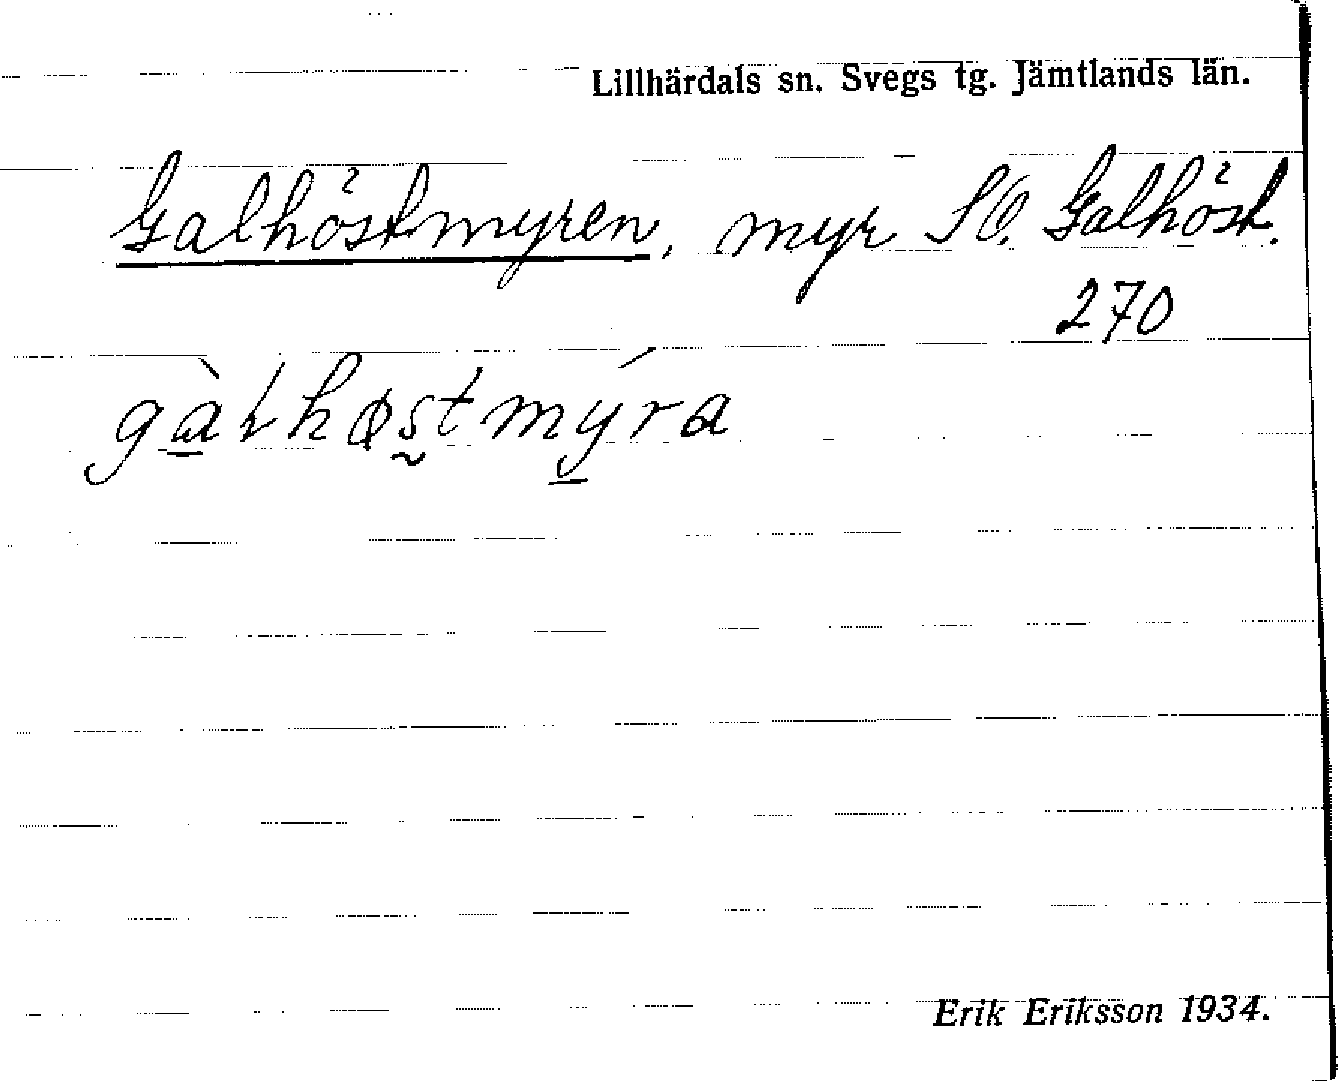 Lillhärdals sn. Svegs tg. Jämtlands län.
Galhöstmyren, myr SO. Galhöst.
270
gàɫhøstmýra
Erik Eriksson 1934.